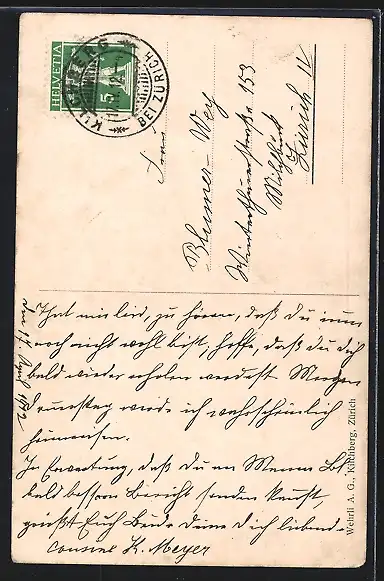 HELVETIA
5
KILCHBERG
BEI ZÜRICH
Frau
Blumer-Wey
Winterthurerstraße 153
Milchbuck
Zürich IV
den 17. April 1912
Thut mir leid, zu hören, daß Du immer
noch nicht wohl bist, hoffe, daß Du Dich
bald wieder erholen werdest. Morgen
Donnerstag werde ich wahrscheinlich
In Erwartung, daß Du an Mama
bald bessern Bericht senden kannst,
grüßt Euch Beide Deine Dich liebende
Cousine K. Meyer
Wehrli A. G., Kilchberg, Zürich